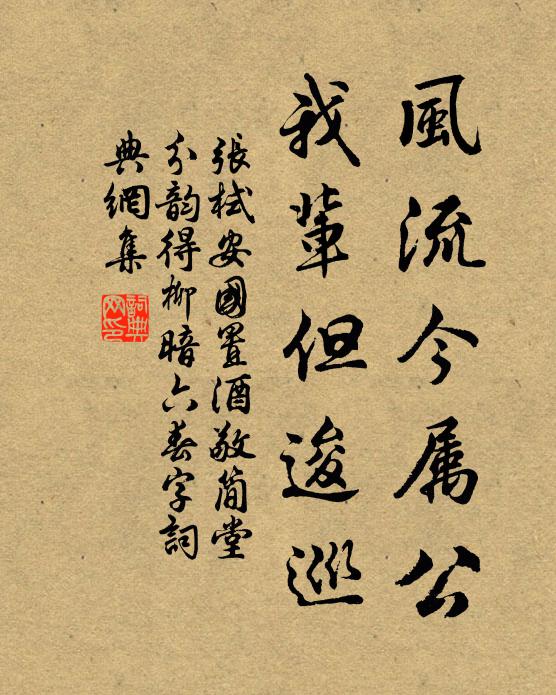 風流今属公
我輩但逡巡
張栻安國置酒敬简堂
分韵得柳暗六春字詞
典網集
詞典
网印